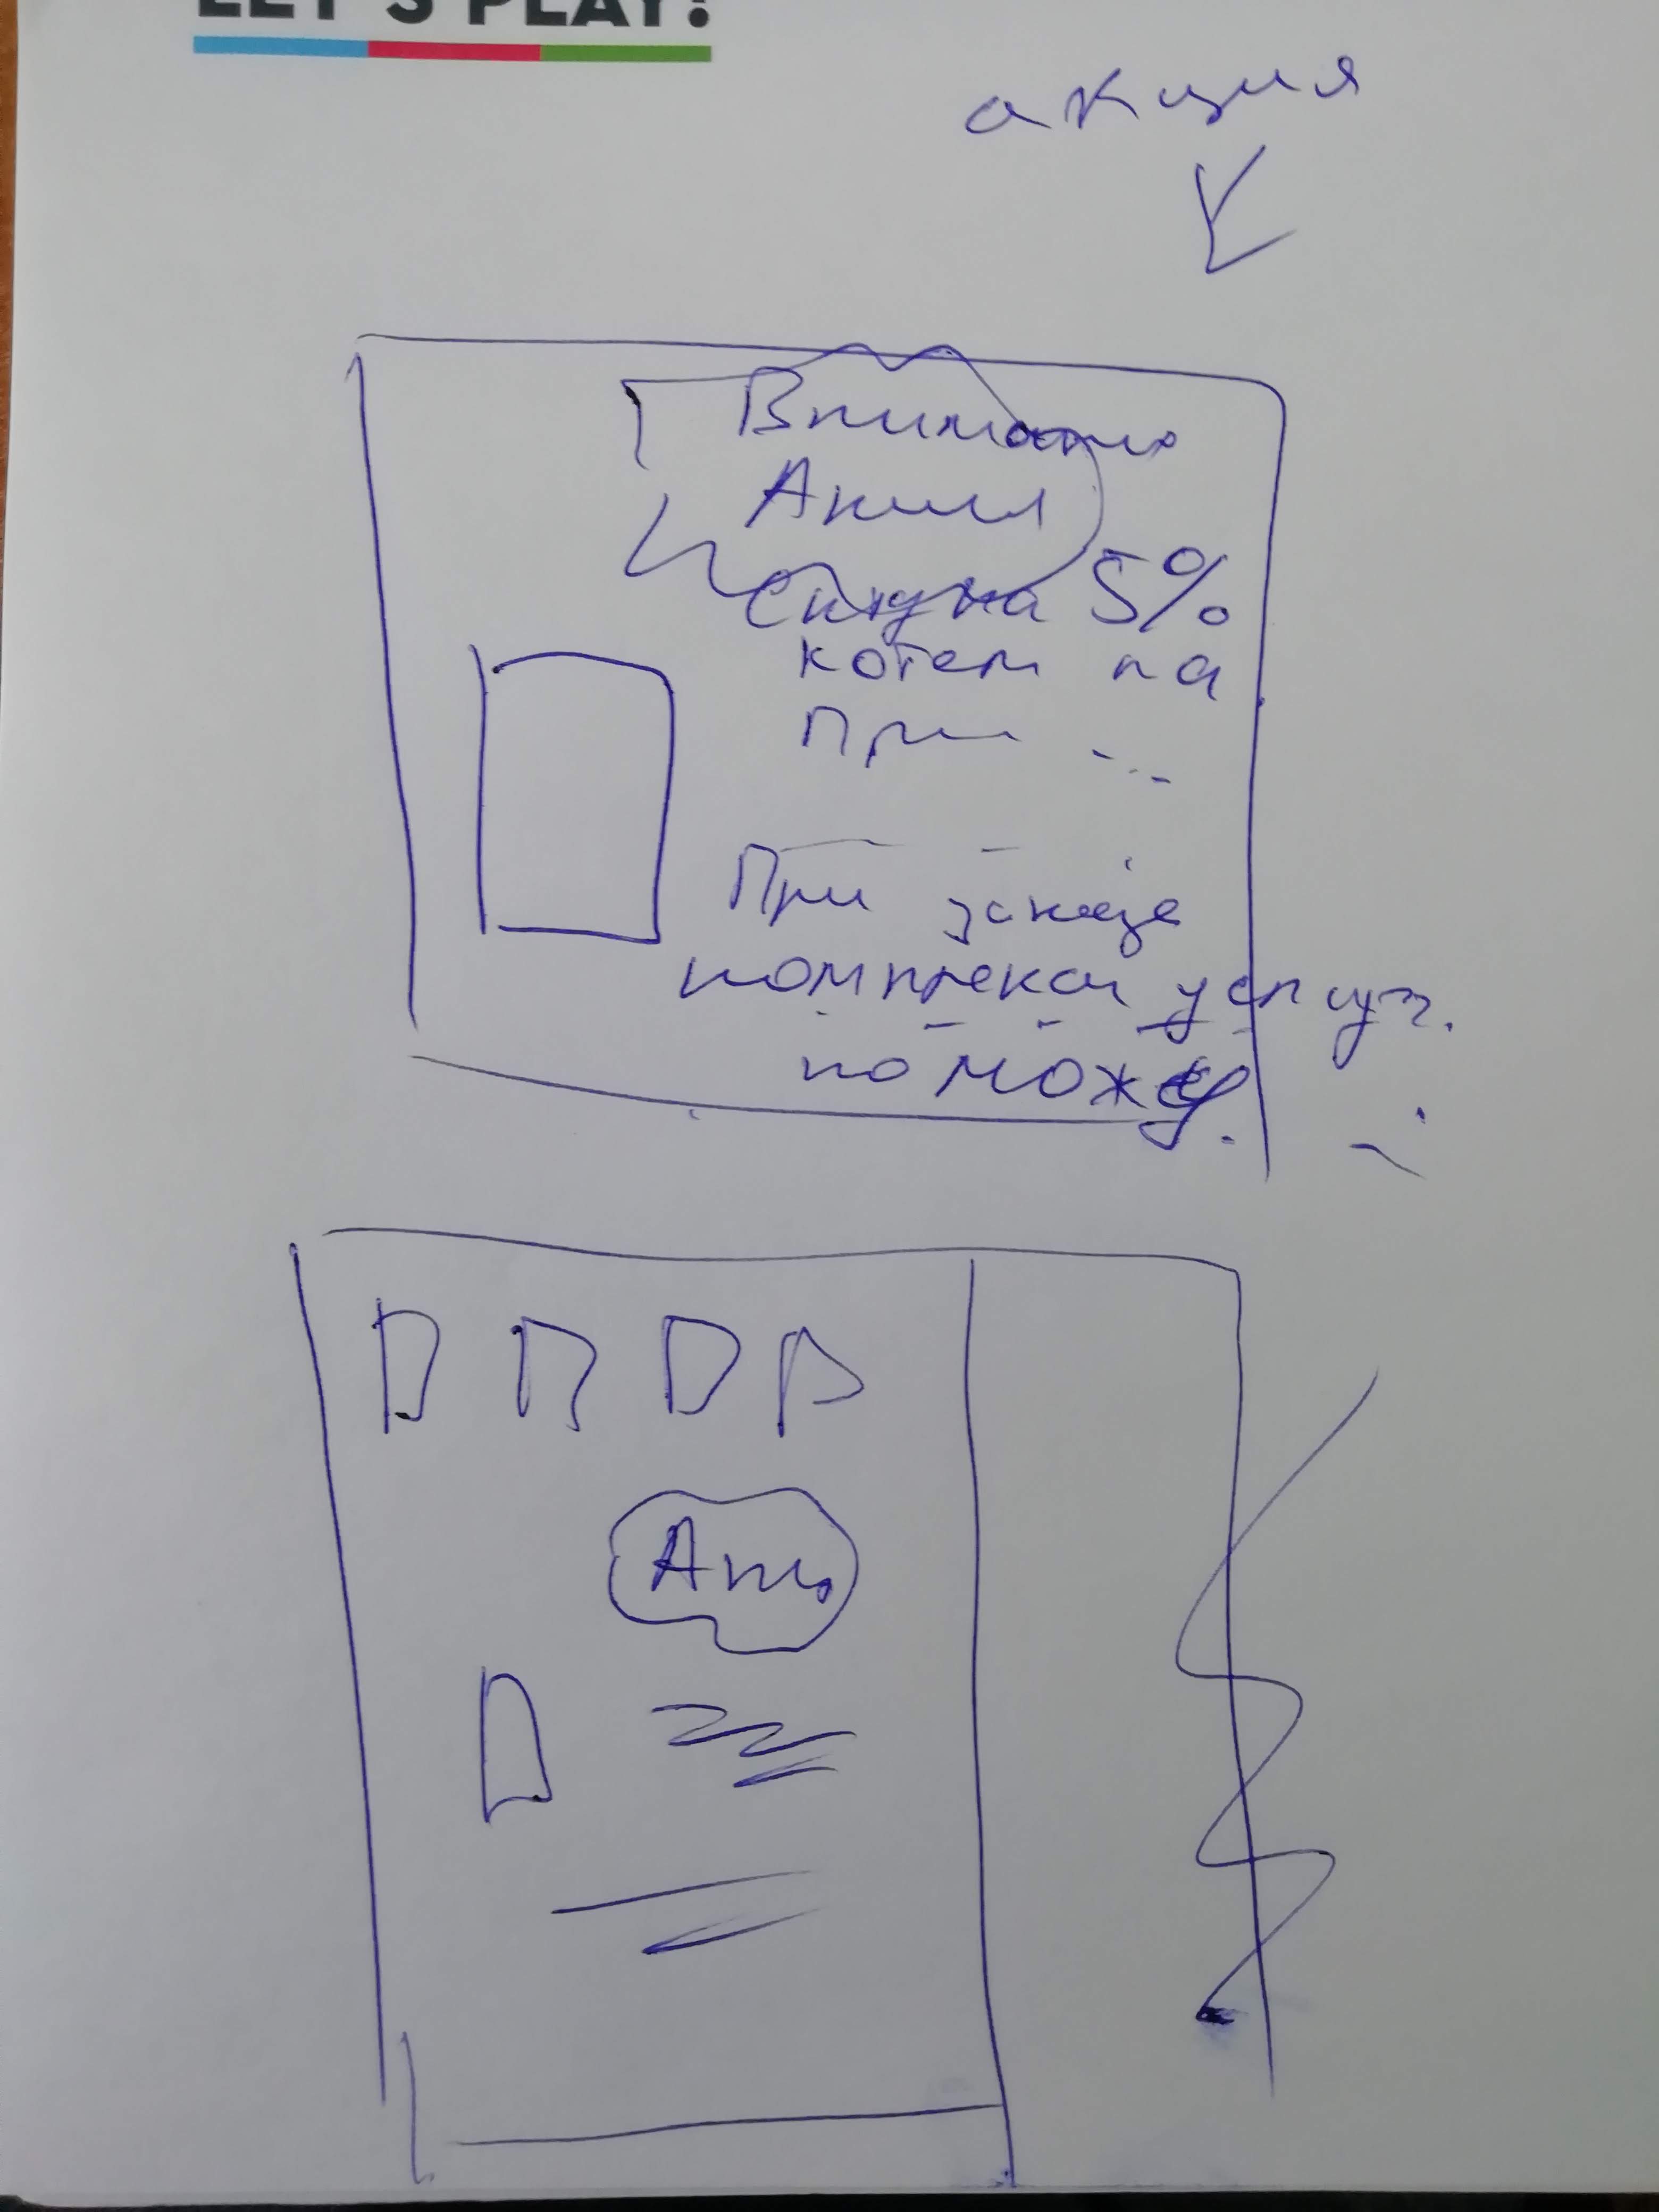 LET'S PLAY!
акция
Внимание
Акция
Скидка 5%
котел на
При ...
При заказе
комплекса услуг.
поможе